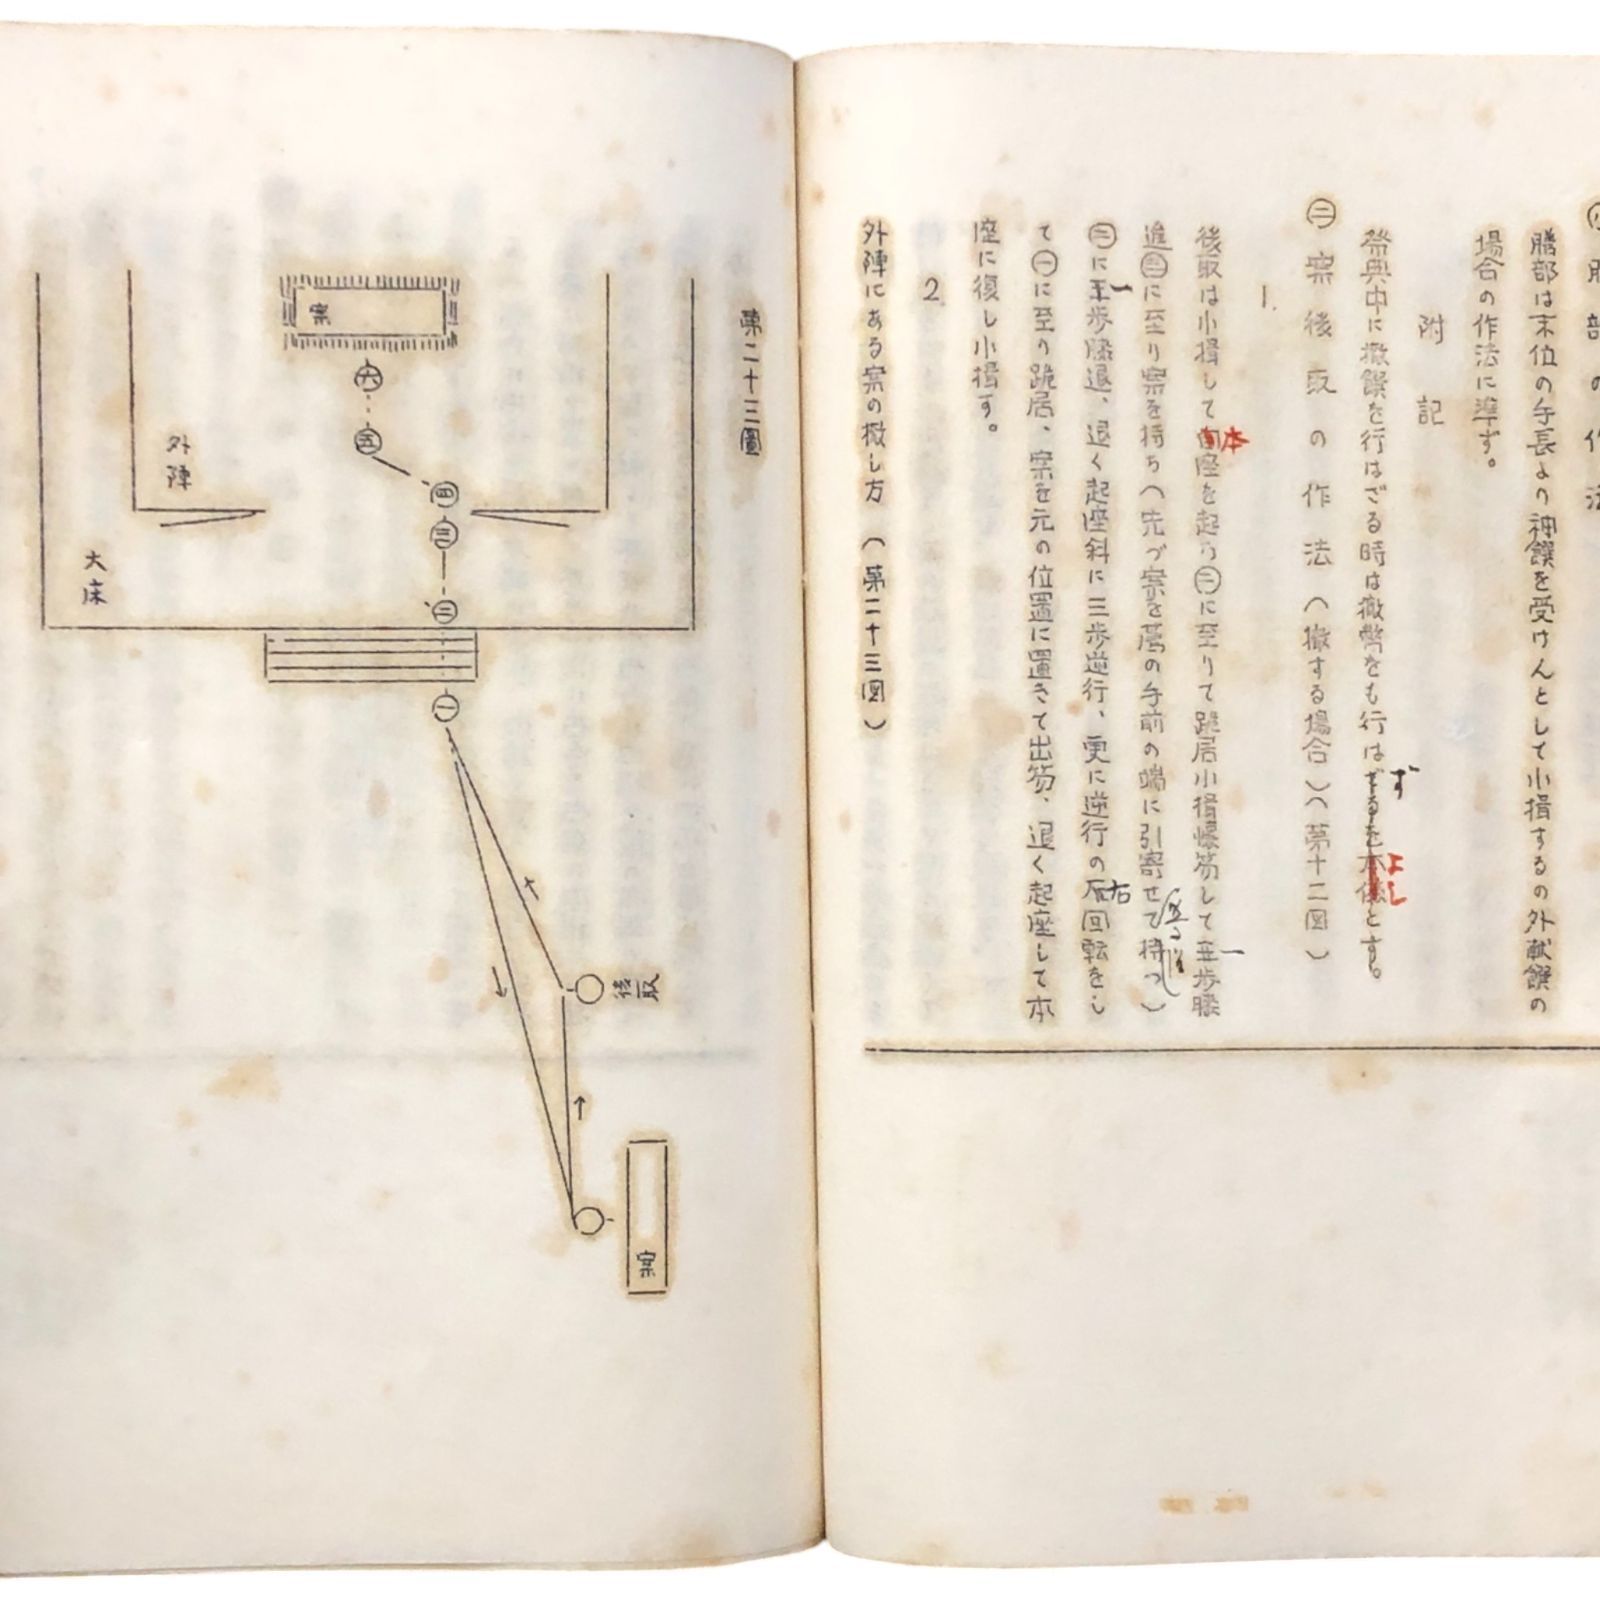 部の作法
膳部は末位の手長より神饌を受けんとして小揖するの外献饌の
場合の作法に準ず。
附記
祭典中に撤饌を行はざる時は撤幣をも行はざるを本儀とす。
ず
よし
㊁ 案後取の作法(撤する場合)(第十二図)
1.
後取は小揖して座を起ち㊁に至りて跪居小揖懐笏して三歩膝
本
一
進㊂に至り案を持ち(先づ案を薦の手前の端に引寄せて持つ)
㊁に三歩膝退、退く起座斜に三歩逆行、更に逆行の左回転をし
一
右
て㊀に至り跪居、案を元の位置に置きて出笏、退く起座して本
座に復し小揖す。
2.
外陣にある案の撤し方(第二十三図)
第二十三圖
案
六
五
四
三
二
一
外陣
大床
後取
案